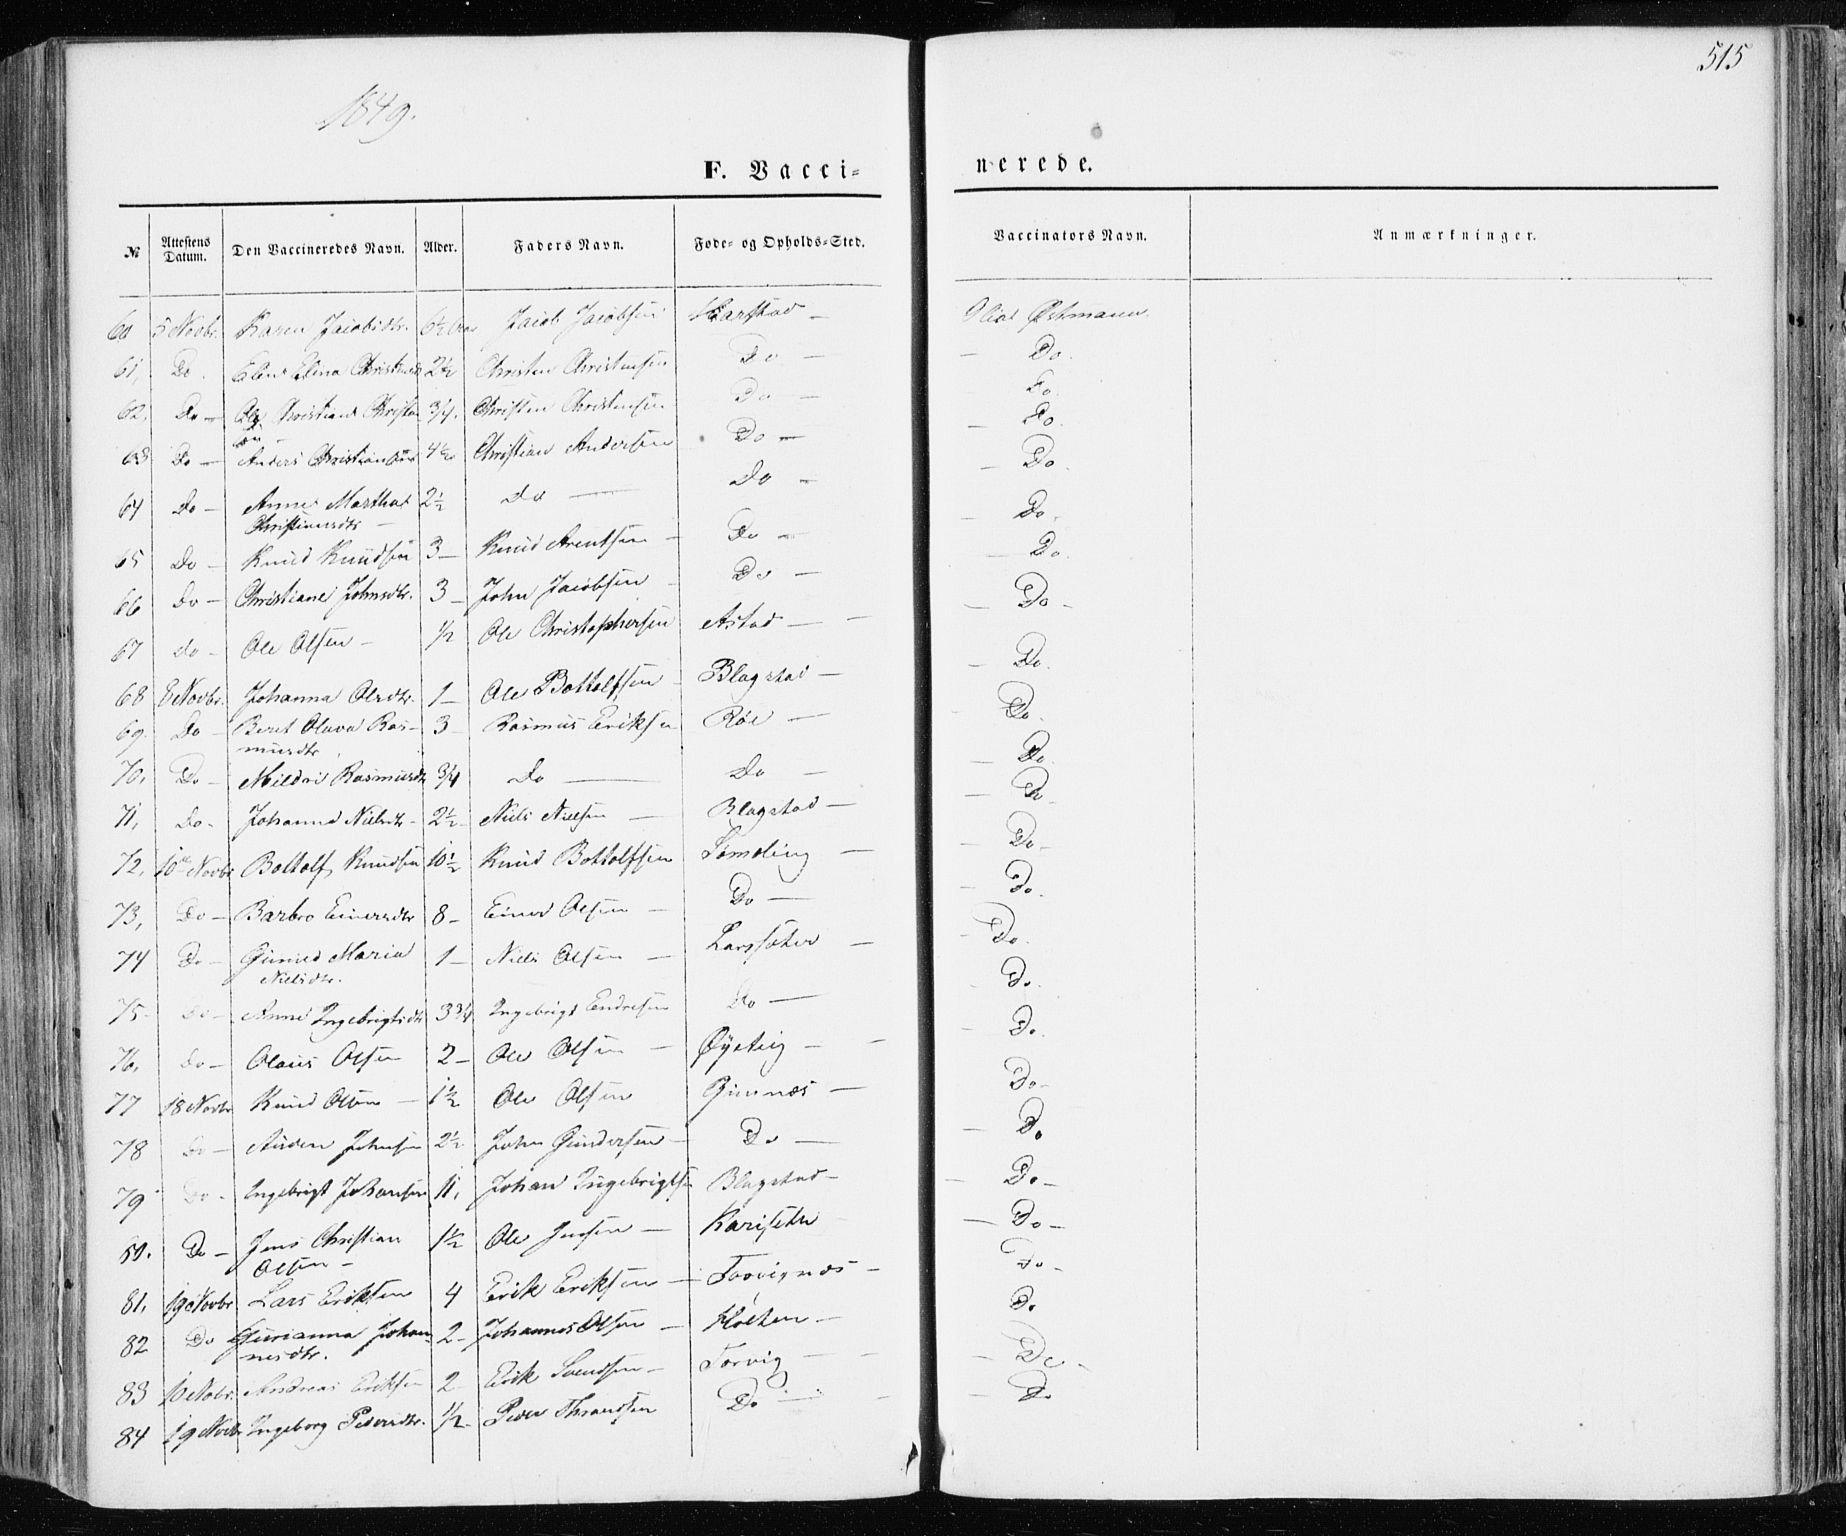 515
1849.
F. Vacci=
nerede.
№ Attestens Datum. Den Vaccineredes Navn. Alder. Faders Navn. Føde= og Opholds=Sted. Vaccinators Navn. Anmærkninger.
60 5 Novbr. Karen Jacobsdtr. 6½ Jacob Jacobsen Harstad — Østmann.
61, Do. Elina 2½ Christen Christensen Do — — Do.
62, Do — Ole Christian 3/4. Christen Christensen Do — Do.
63 Do — Anders Christiansen 4½ Christian Andersen Do — Do.
64 Do — Anne Martha 2½ Do — Do — — Do.
Christiansdtr —
65 Do — Knud Knudsen 3 — Knud Arentsen — Do — — Do.
66 Do — Christiane Johnsdtr. 3 — John Jacobsen — Do — — Do.
67 do — Ole Olsen — 1/2 Ole Christophersen Astad — — Do —
68 8 Novbr. Johanna Olsdtr. 1 — Ole Bottolfsen — Blagstad — — Do.
69. Do — Beret Olava Ras- 3 — Rasmus Eriksen Röe — — Do.
musdtr.
70, Do — Mildri Rasmusdtr 3/4 Do — Do — — Do.
71, Do — Johanna Nielsdtr — 2½ — Niels Nielsen — Blagstad — — Do.
72, 10de Novbr Bottolf Knudsen 10½ Knud Bottolfsen — Do —
73, Do — Barbro Einersdtr 8 — Einer Olsen — Do — — Do.
74 Do — Maria 1 — Niels Olsen — Larssæter — — Do.
Nielsdtr.
75 Do — Anne Ingebrigtsdtr 3 3/4 Ingebrigt Endresen Do — Do.
76, do — Olaus Olsen 2 — Ole Olsen — Øysteig — — Do.
77 18 Novbr Knud Olsen — 1½ Ole Olsen Gimnæs — — Do —
78 Do — Auden Johnsen 2½ John Gundersen — Do — — Do
79 Do — Ingebrigt Johansen 11, Johan Ingebrigtsen Blagstad — — Do —
80. Do — Jens Christian 1½ Ole Jensen — Karisetr — Do —
Olsen —
81, 19 Novbr Lars Eriksen 4 Erik Eriksen — Torvignæs — Do —
82 Do Gurianna Johan- 2 — Johannes Olsen — Holten — Do
nesdtr.
83 10 Novbr. Andreas Eriksen 2 Erik Svendsen — Torvig — — Do —
84 19 Novbr Ingeborg Pedersdtr. 1/2 — Peder Thrandsen Do — — Do